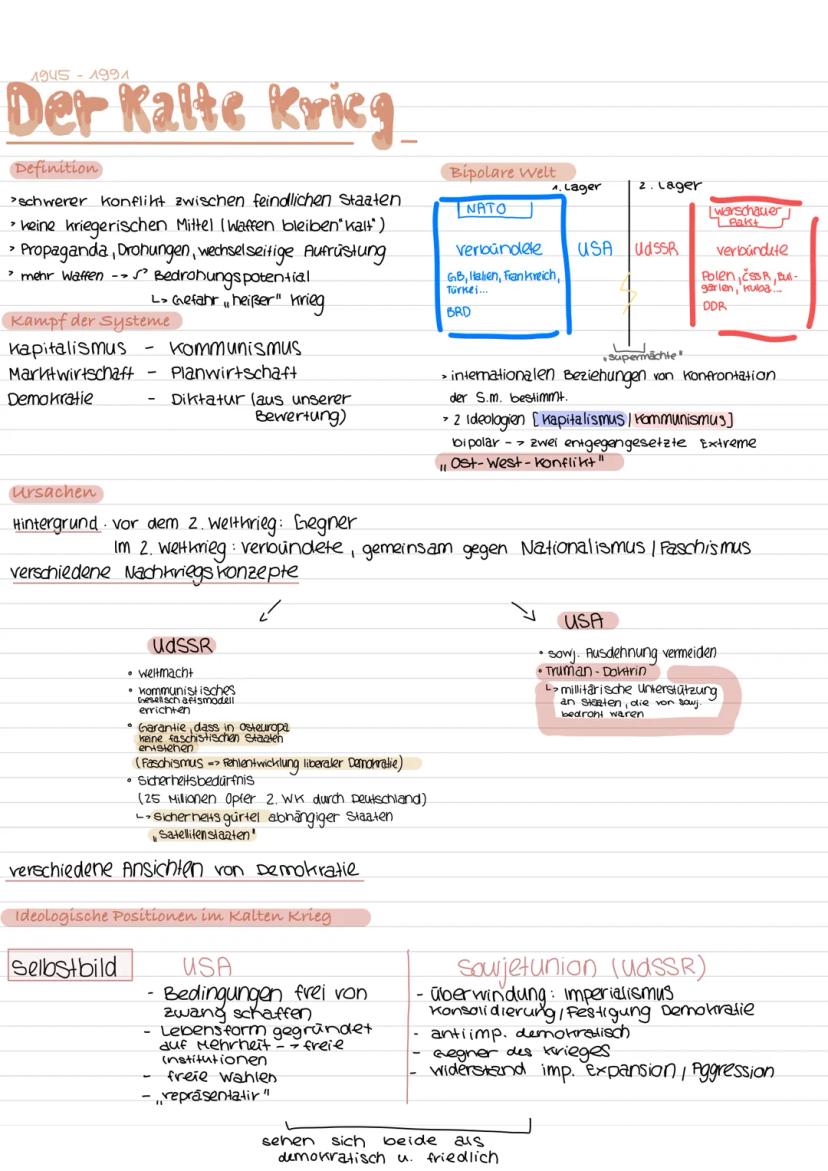 1945 - 1991
Der Kalte Krieg
Definition
>schwerer Konflikt zwischen feindlichen Staaten
> keine kriegerischen Mittel (Waffen bleiben "kalt")
> Propaganda, Drohungen, wechselseitige Aufrüstung
> mehr Waffen --> Bedrohungspotential
L> Gefahr „heißer" Krieg
Kampf der Systeme
Kapitalismus - Kommunismus
Marktwirtschaft - Planwirtschaft
Demokratie - Diktatur (aus unserer
Bewertung)
Bipolare Welt
1. Lager 2. Lager
NATO
Verbündete
GB, Italien, Frankreich,
Türkei...
BRD
USA UdSSR
Warschauer
Pakt
Verbündte
Polen, ČSSR, Bul-
garien, Kuba...
DDR
„Supermächte"
> internationalen Beziehungen von Konfrontation
der S.m. bestimmt.
> 2 Ideologien [Kapitalismus | Kommunismus]
bipolar --> zwei entgegengesetzte Extreme
„Ost-West-Konflikt"
Ursachen
Hintergrund: vor dem 2. Weltkrieg: Gegner
Im 2. Weltkrieg: Verbündete, gemeinsam gegen Nationalismus / Faschismus
verschiedene Nachkriegskonzepte
UdSSR
• Weltmacht
• Kommunistisches
Gesellschaftsmodell
errichten
• Garantie, dass in Osteuropa
keine faschistischen Staaten
entstehen
(Faschismus => Fehlentwicklung liberaler Demokratie)
• Sicherheitsbedürfnis
(25 Millionen Opfer 2. WK durch Deutschland)
L> Sicherheitsgürtel abhängiger Staaten
„Satellitenstaaten"
USA
• sowj. Ausdehnung vermeiden
• Truman-Doktrin
L> militärische Unterstützung
an Staaten, die von sowj.
bedroht waren
verschiedene Ansichten von Demokratie
Ideologische Positionen im Kalten Krieg
Selbstbild
USA
- Bedingungen frei von
Zwang schaffen
- Lebensform gegründet
auf Mehrheit --> freie
Institutionen
- freie Wahlen
- „repräsentatir"
Sowjetunion (UdSSR)
- Überwindung: Imperialismus
Konsolidierung / Festigung Demokratie
- antiimp. demokratisch
- Gegner des Krieges
- Widerstand imp. Expansion / Aggression
sehen sich beide als
demokratisch u. friedlich